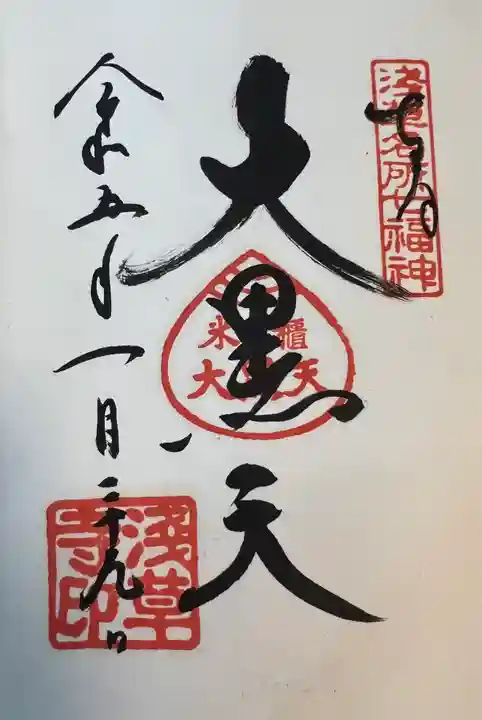 浅草名所七福神
大黒天
米櫃
大黒天
令和五年一月二十九日
浅草
寺印